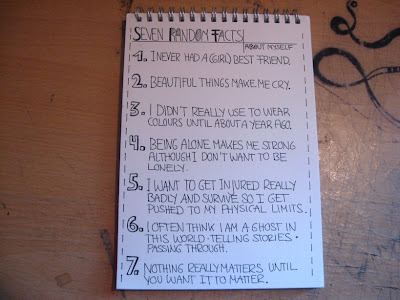 SEVEN RANDOM FACTS
ABOUT MYSELF
1. I NEVER HAD A (GIRL) BEST FRIEND.
2. BEAUTIFUL THINGS MAKE ME CRY.
3. I DIDN'T REALLY USE TO WEAR
COLOURS UNTIL ABOUT A YEAR AGO.
4. BEING ALONE MAKES ME STRONG
ALTHOUGH I DON'T WANT TO BE
LONELY.
5. I WANT TO GET INJURED REALLY
BADLY AND SURVIVE SO I GET
PUSHED TO MY PHYSICAL LIMITS.
6. I OFTEN THINK I AM A GHOST IN
THIS WORLD · TELLING STORIES ·
PASSING THROUGH.
7. NOTHING REALLY MATTERS UNTIL
YOU WANT IT TO MATTER.